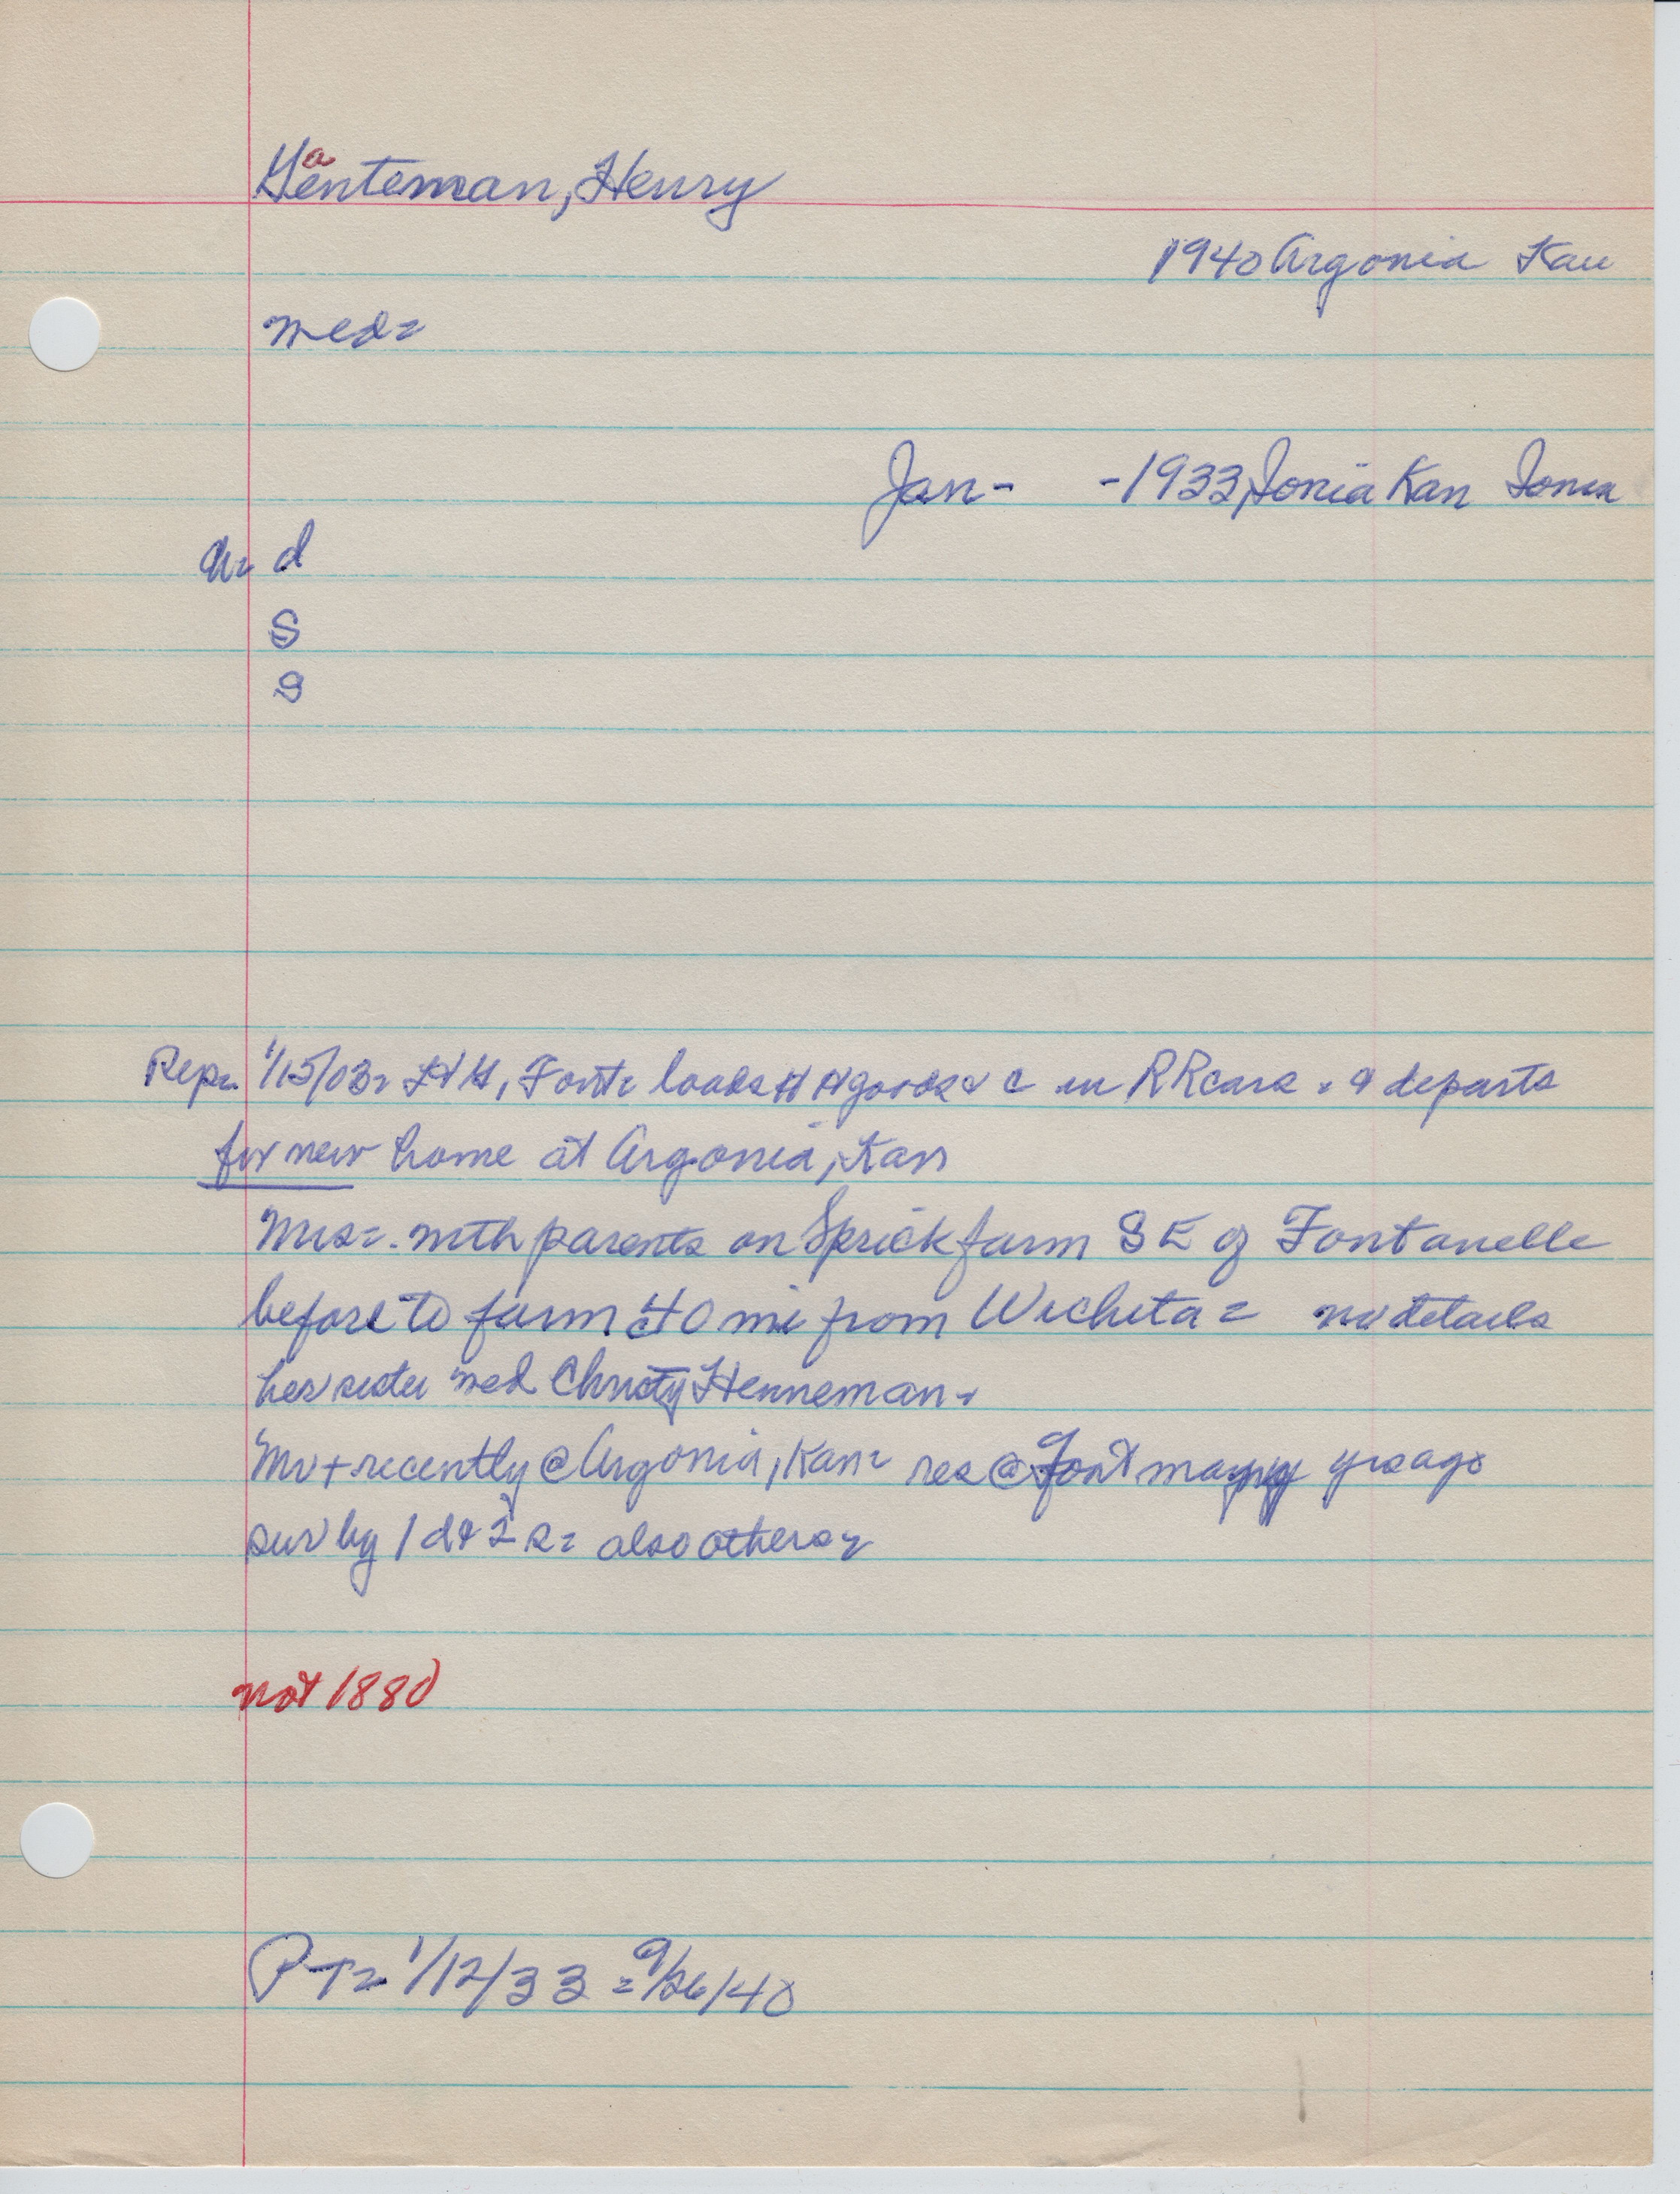 Genteman, Henry
a
1940 Argonia Kan
med=
Jan- -1933, Ionia Kan Ionia
ch= d
s
s
Rep= 1/15/03= HG, Font= loads HH goods & c in RR cars = & departs
for new home at Argonia, Kan
Mrs=. with parents on Sprick farm SE of Fontanelle
before to farm 40 mi from Wichita = no details
her sister med Christy Henneman=
Mr + recently @ Argonia, Kan= res @ Font many yrs ago
sur by 1 d & 2 s= also others=
not 1880
PT= 1/12/33 = 9/26/40